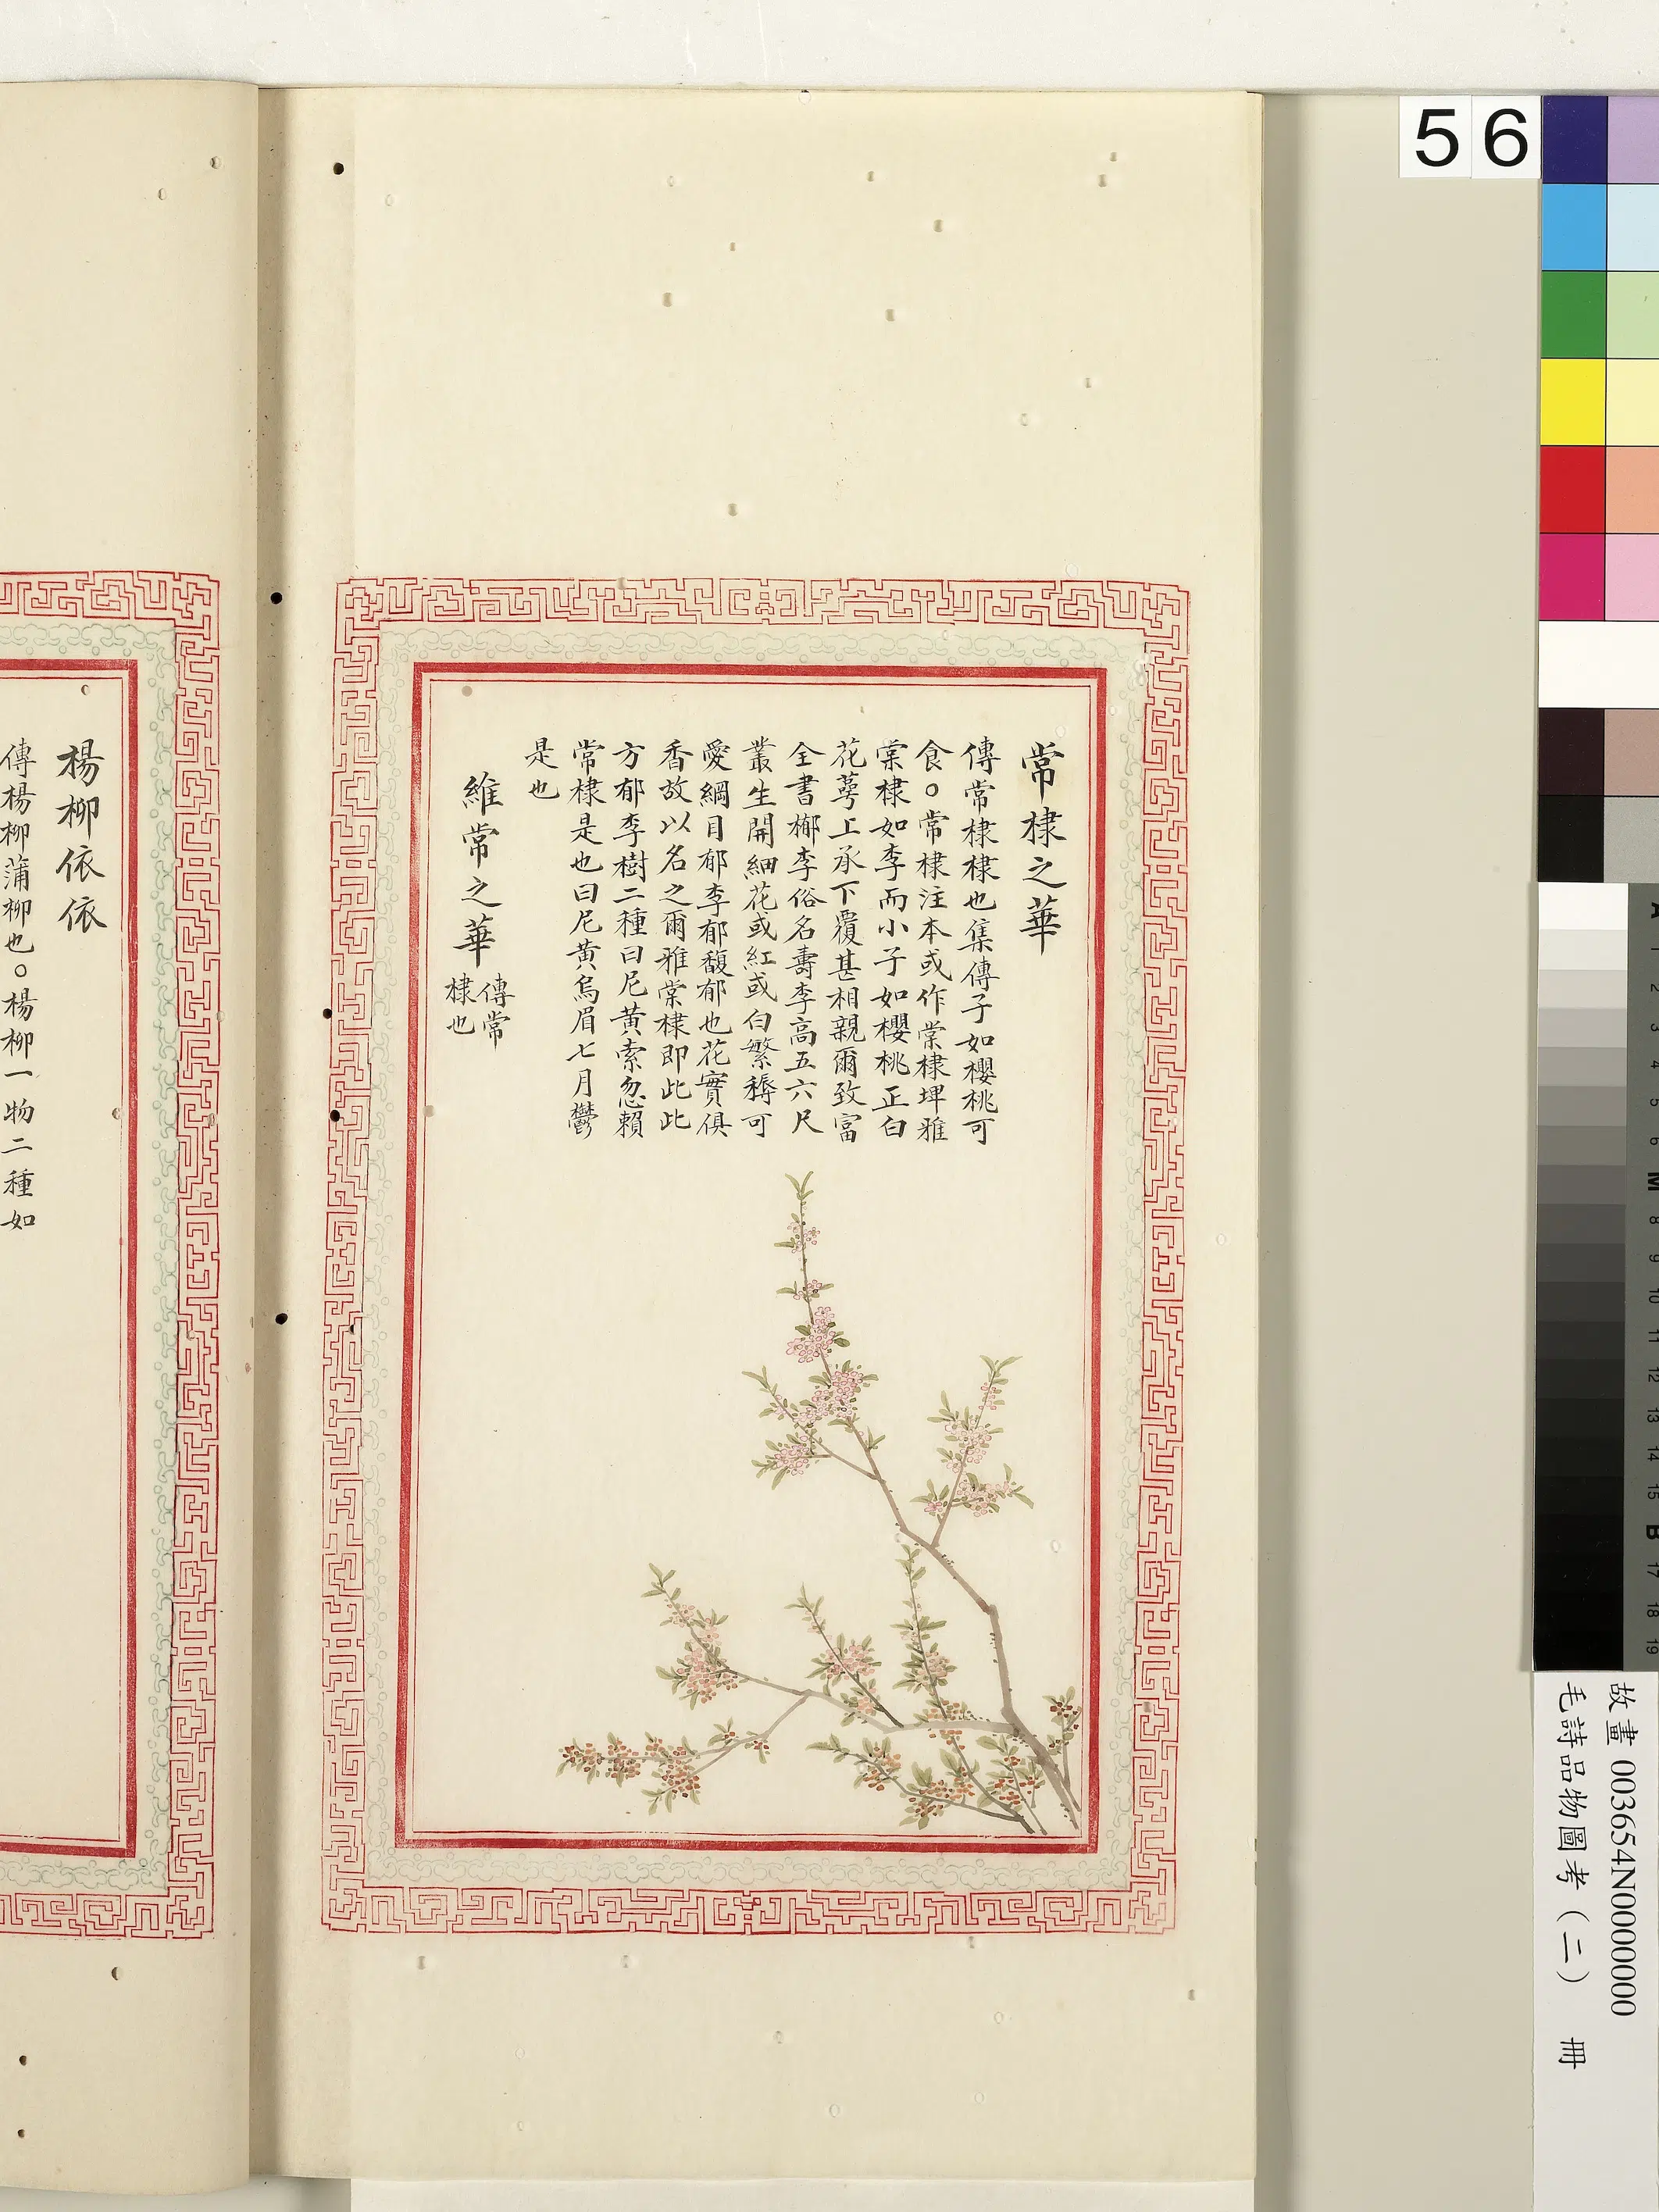 56
常棣之華
傳常棣棣也集傳子如櫻桃可
食○常棣注本或作棠棣埤雅
棠棣如李而小子如櫻桃正白
花萼上承下覆甚相親爾致富
全書郁李俗名壽李高五六尺
叢生開細花或紅或白繁縟可
愛綱目郁李郁馥郁也花實俱
香故以名之爾雅棠棣即此此
方郁李樹二種曰尼黃索忽賴
常棣是也曰尼黃烏眉七月鬱
是也
維常之華
傳常
棣也
楊柳依依
傳楊柳蒲柳也○楊柳一物二種如
故畫 003654N000000000
毛詩品物圖考（二） 冊
A 1 2 3 4 5 6 M 8 9 10 11 12 13 14 15 B 17 18 19